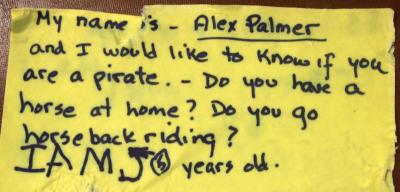 My name is - Alex Palmer
and I would like to know if you
are a pirate. - Do you have a
horse at home? Do you go
horseback riding?
I AM 5 years old.